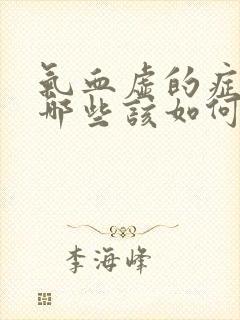 氣血虛的症
哪些該如何
李海峰